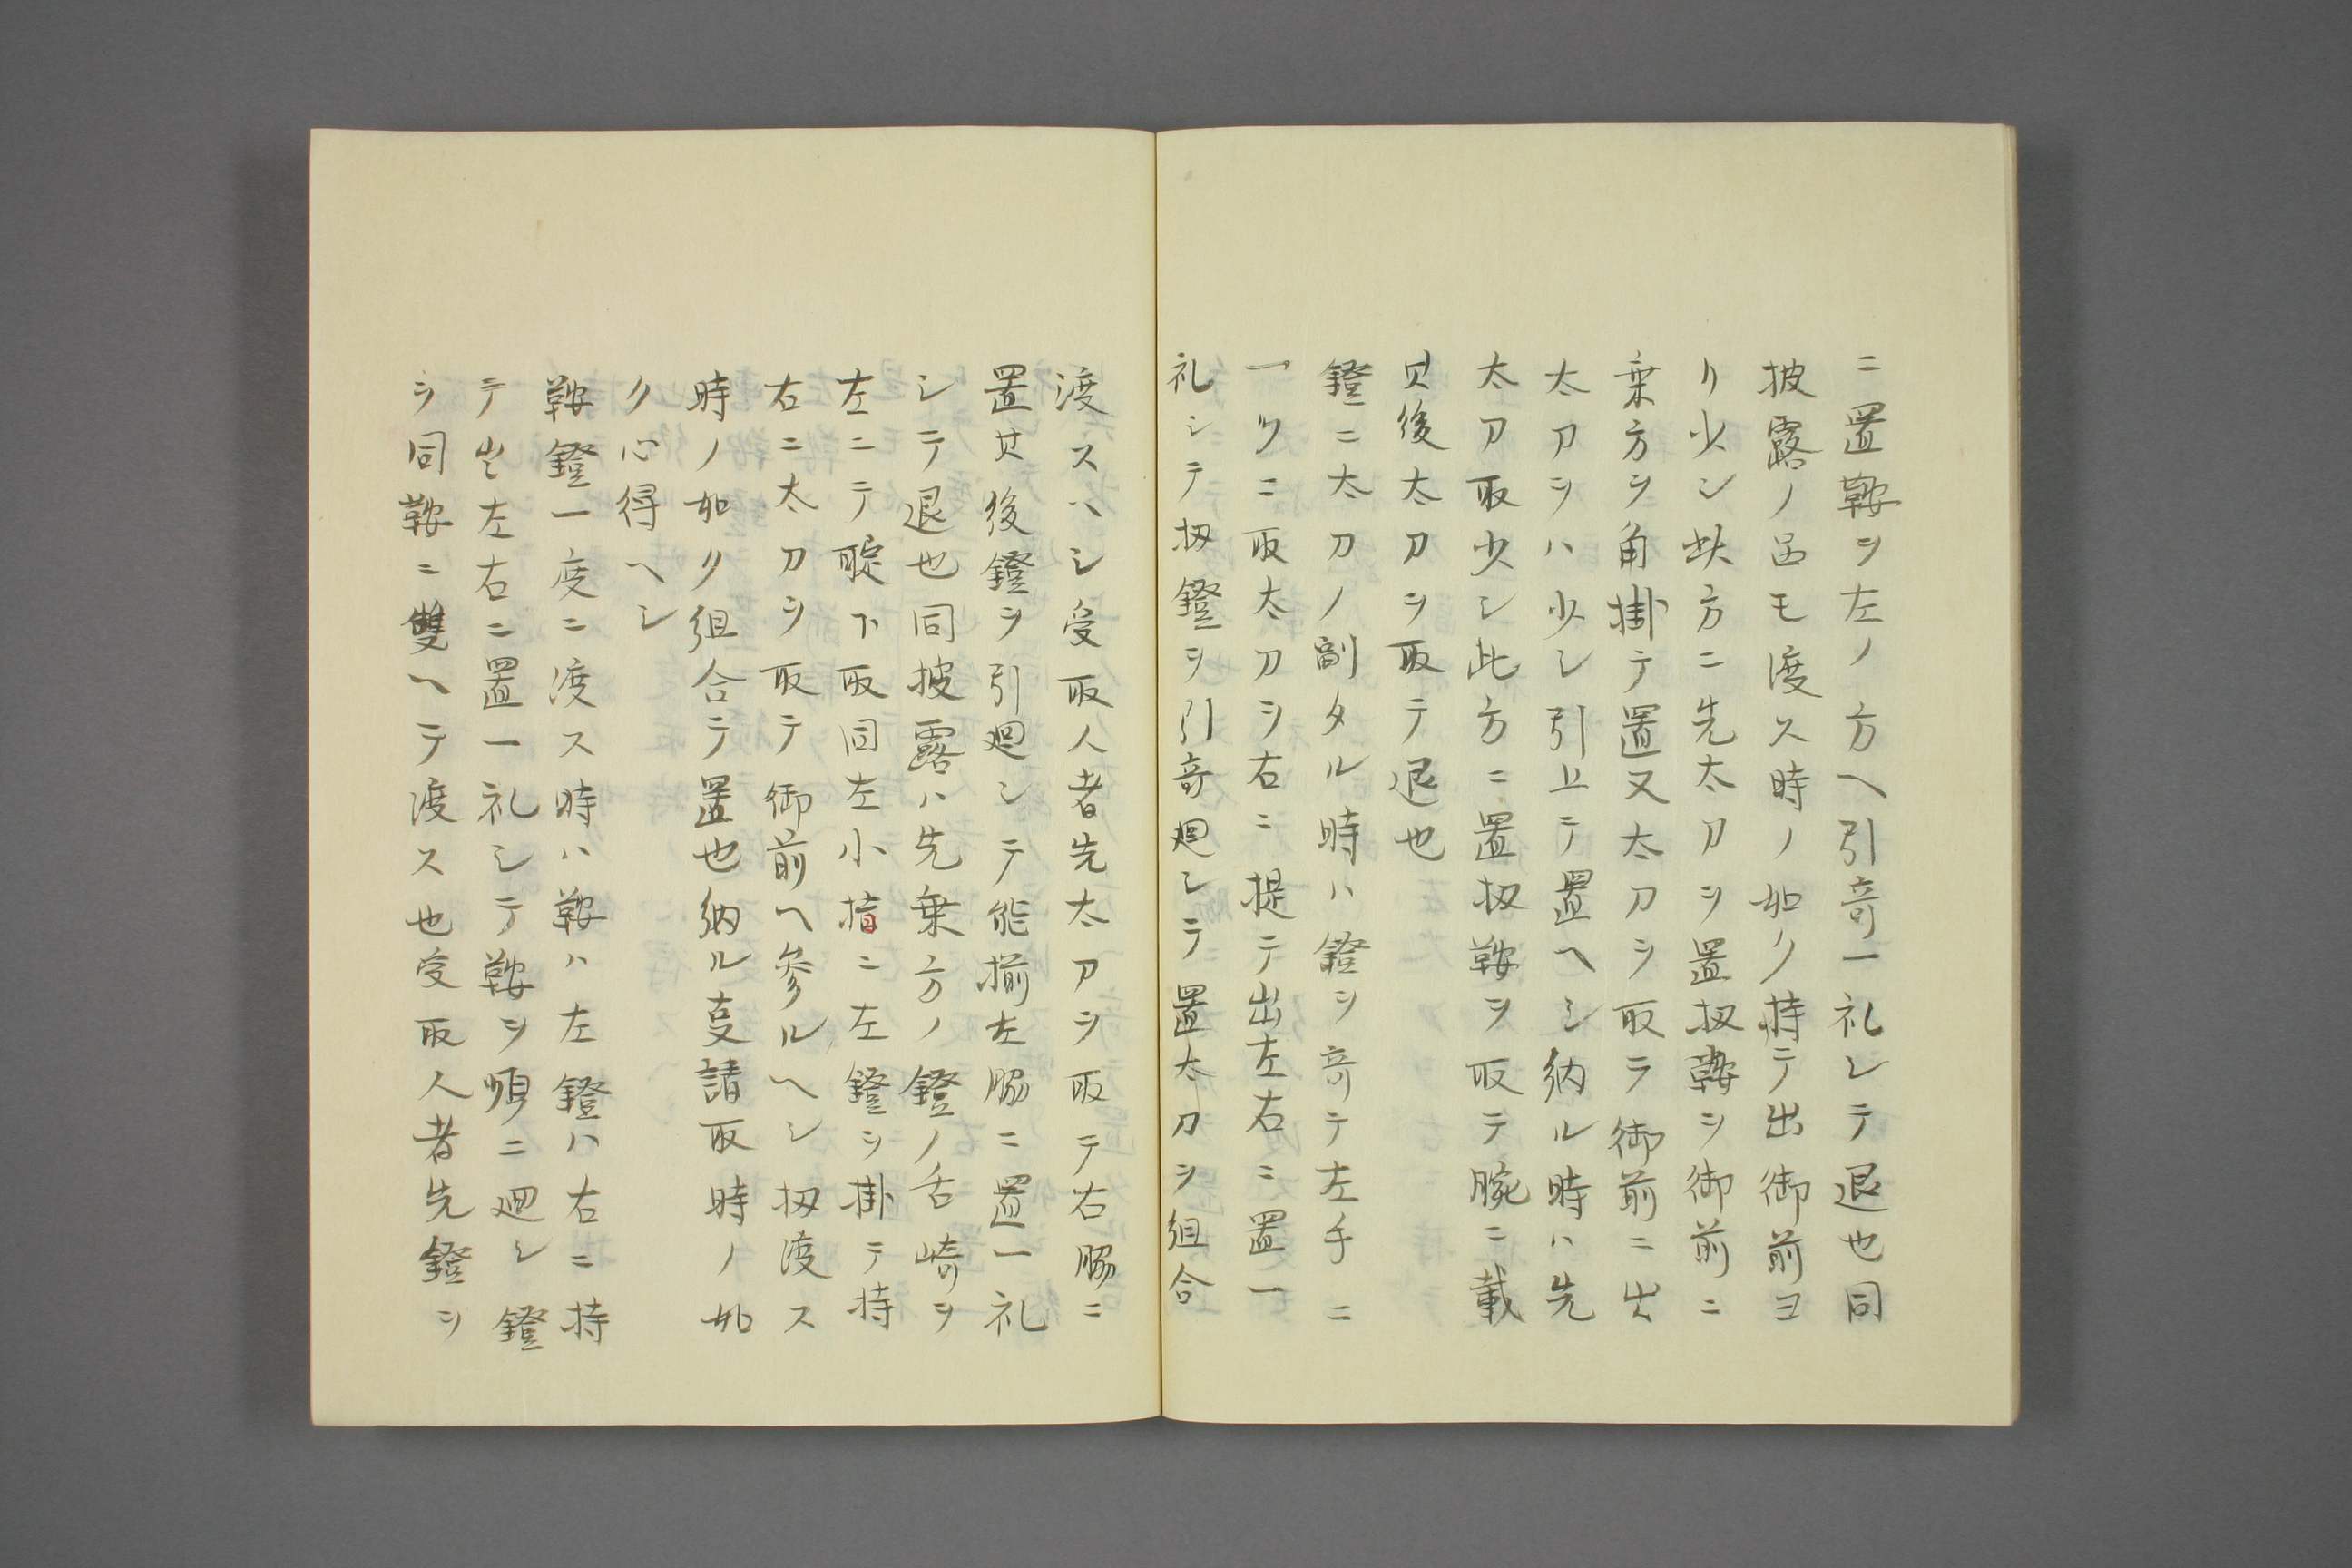 ニ置鞍ヲ左ノ方ヘ引竒一礼シテ退也同
披露ノ㠯モ渡ス時ノ如ク持テ出御前ヨ
リ少シ此方ニ先太刀ヲ置扨鞍ヲ御前ニ
乗方ヲ角掛テ置又太刀ヲ取テ御前ニ出
太刀ヲハ少シ引上テ置ヘシ納ル時ハ先
太刀取少シ此方ニ置扨鞍ヲ取テ腕ニ載
其後太刀ヲ取テ退也
鐙ニ太刀ノ副タル時ハ鐙ヲ竒テ左手ニ
一ツニ取太刀ヲ右ニ提テ出左右ニ置一
礼シテ扨鐙ヲ引竒廻シテ置太刀ヲ組合
渡スヘシ受取人者先太刀ヲ取テ右脇ニ
置其後鐙ヲ引廻シテ能揃左脇ニ置一礼
シテ退也同披露ハ先乗方ノ鐙ノ舌崎ヲ
左ニテ取下取回左小指ニ左鐙ヲ掛テ持
右ニ太刀ヲ取テ御前ヘ參ルヘシ扨渡ス
時ノ如ク組合テ置也納ル㕝請取時ノ如
ク心得ヘシ
鞍鐙一度ニ渡ス時ハ鞍ハ左鐙ハ右ニ持
テ出左右ニ置一礼シテ鞍ヲ順ニ廻シ鐙
ヲ同鞍ニ雙ヘテ渡ス也受取人者先鐙ヲ